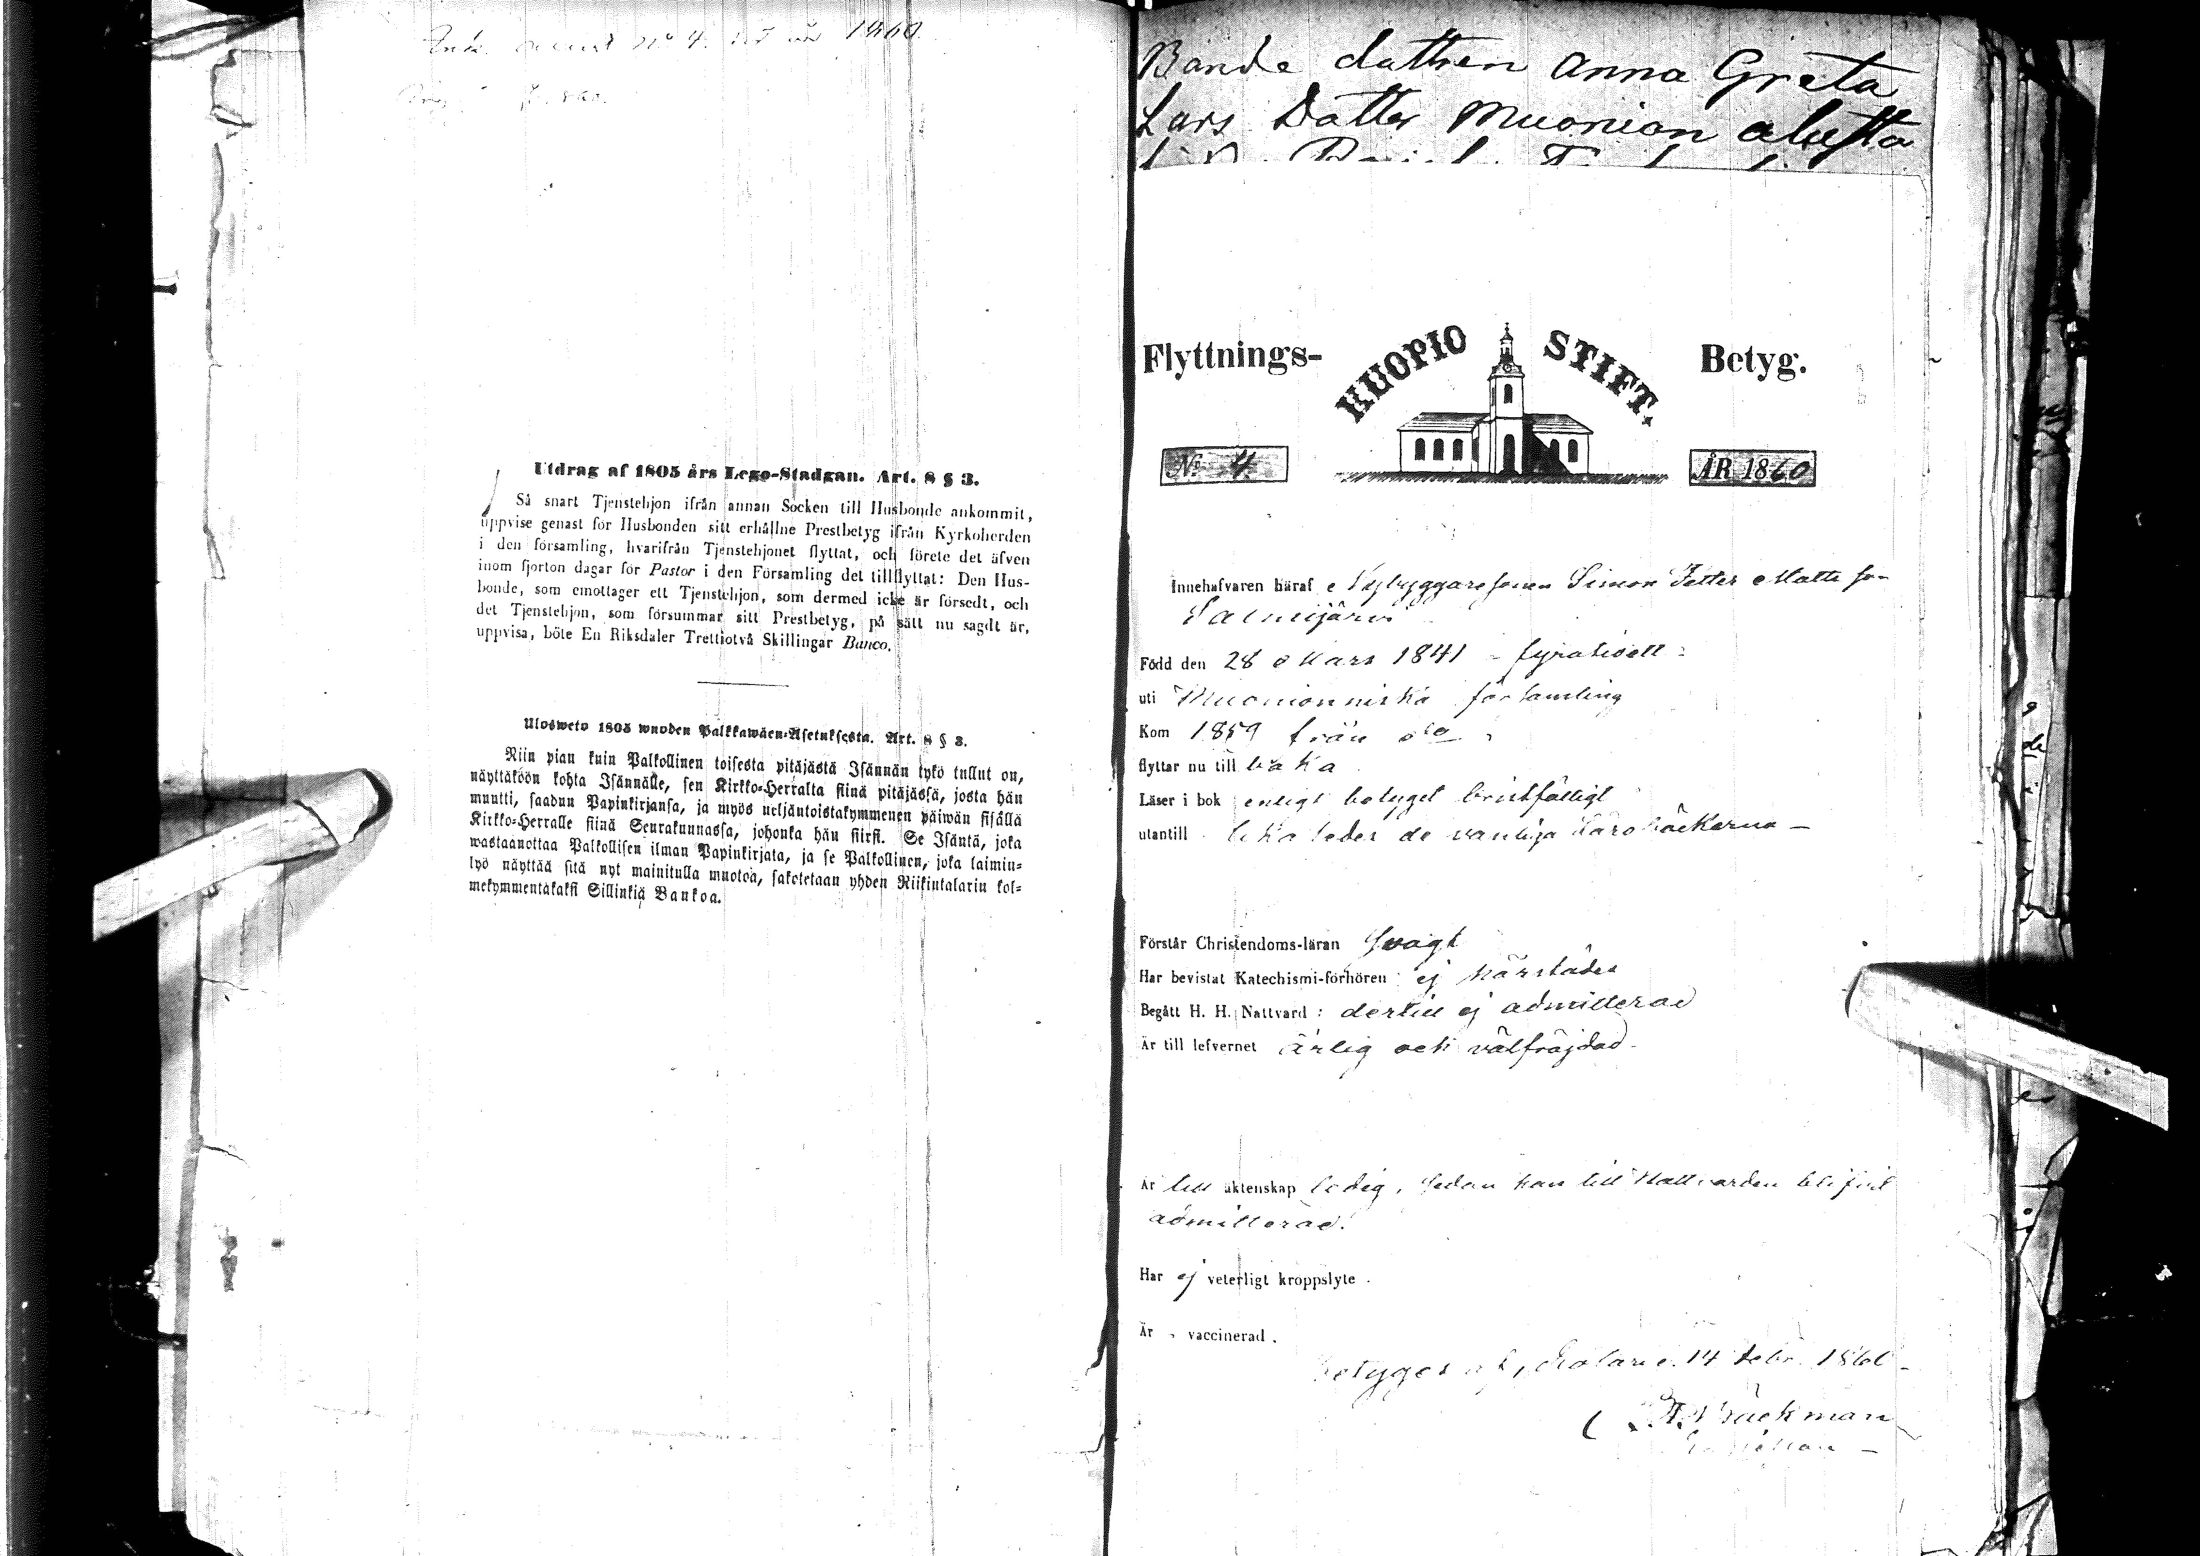 1860
Utdrag af 1805 års Lego-Stadgan. Art. 8 § 3.
Så snart Tjenstehjon ifrån annan Socken till Husbonde ankommit,
uppvise genast för Husbonden sitt erhållne Prestbetyg ifrån Kyrkoherden
i den församling, hvarifrån Tjenstehjonet flyttat, och förete det äfven
inom fjorton dagar för Pastor i den Församling det tillflyttat: Den Hus-
bonde, som emottager ett Tjenstehjon, som dermed icke är försedt, och
det Tjenstehjon, som försummar sitt Prestbetyg, på sätt nu sagdt är,
uppvisa, böte En Riksdaler Trettiotvå Skillingar Banco.
Ulosweto 1805 wuoden Palkkawäen-Asetuksesta. Art. 8 § 3.
Niin pian kuin Palkollinen toisesta pitäjästä Isännän tykö tullut on,
näyttäköön kohta Isännälle, sen Kirkko-Herralta siinä pitäjässä, josta hän
muutti, saadun Papinkirjansa, ja myös neljäntoistakymmenen päiwän sisällä
Kirkko-Herralle siinä Seurakunnassa, johonka hän siirsi. Se Isäntä, joka
wastaanottaa Palkollisen ilman Papinkirjata, ja se Palkollinen, joka laimin-
lyö näyttää sitä nyt mainitulla muotoa, sakotetaan yhden Riikintalarin kol-
mekymmentäkaksi Sillinkiä Bankoa.
Bonde dottren Anna Greta
Lars Dotter Muonion alusta
Flyttnings- KUOPIO STIFT. Betyg.
No 4 ÅR 1860
Innehafvaren häraf Nybyggaresonen Simon Petter Matts son
Salmijärvi
Född den 28 Mars 1841 - fyratioett -
uti Muonionniska församling
Kom 1859 från
flyttar nu till baka
Läser i bok enligt betyget bristfälligt
utantill lika leder de vanliga läroböckerna -
Förstår Christendoms-läran Svagt
Har bevistat Katechismi-förhören ej härstädes
Begått H. H. Nattvard: dertill ej admitterad
Är till lefvernet ärlig och välfräjdad.
Är till äktenskap ledig, sedan han till Nattvarden blifvit
admitterad.
Har ej veterligt kroppslyte.
Är vaccinerad.
betygar Kolari 14 Febr. 1860 -
Bäckman